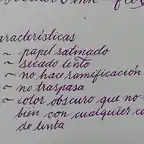 aracterísticas
~ papel satinado
~ secado lento
~ no hace ramificación
~ no traspasa
~ color obscuro que no
bien con cualquier co
de tinta